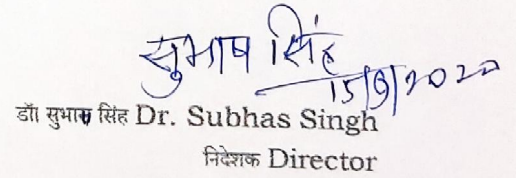 सुभाष सिंह
15/9/2020
डॉ। सुभाष सिंह Dr. Subhas Singh
निदेशक Director